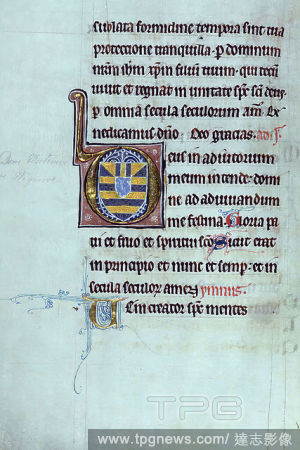 sublata formidine tempora sint tua
protectione tranquilla · p dominum
nrm ihm xpm filium tuum · qui tecū
uiuit et regnat in unitate spc sci deus
p omnia secula seculorum am Ex
nedicamus dn̄o · Deo gracias · ad
Deus in adiutorium
meum intende · domi
ne ad adiuuandum
me festina Gloria pa
tri et filio et spiritui sco Sicut erat
in principio et nunc et semp · et in
secula seculor amen
creator spc mentes
TPG
www.tpgnews.com/ 達志影像